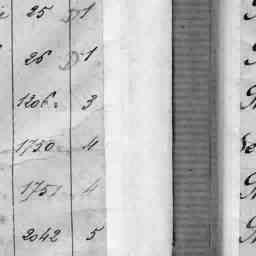 25 D 1
26 D 1
1206. 3
1750 4
1751 4
2042 5